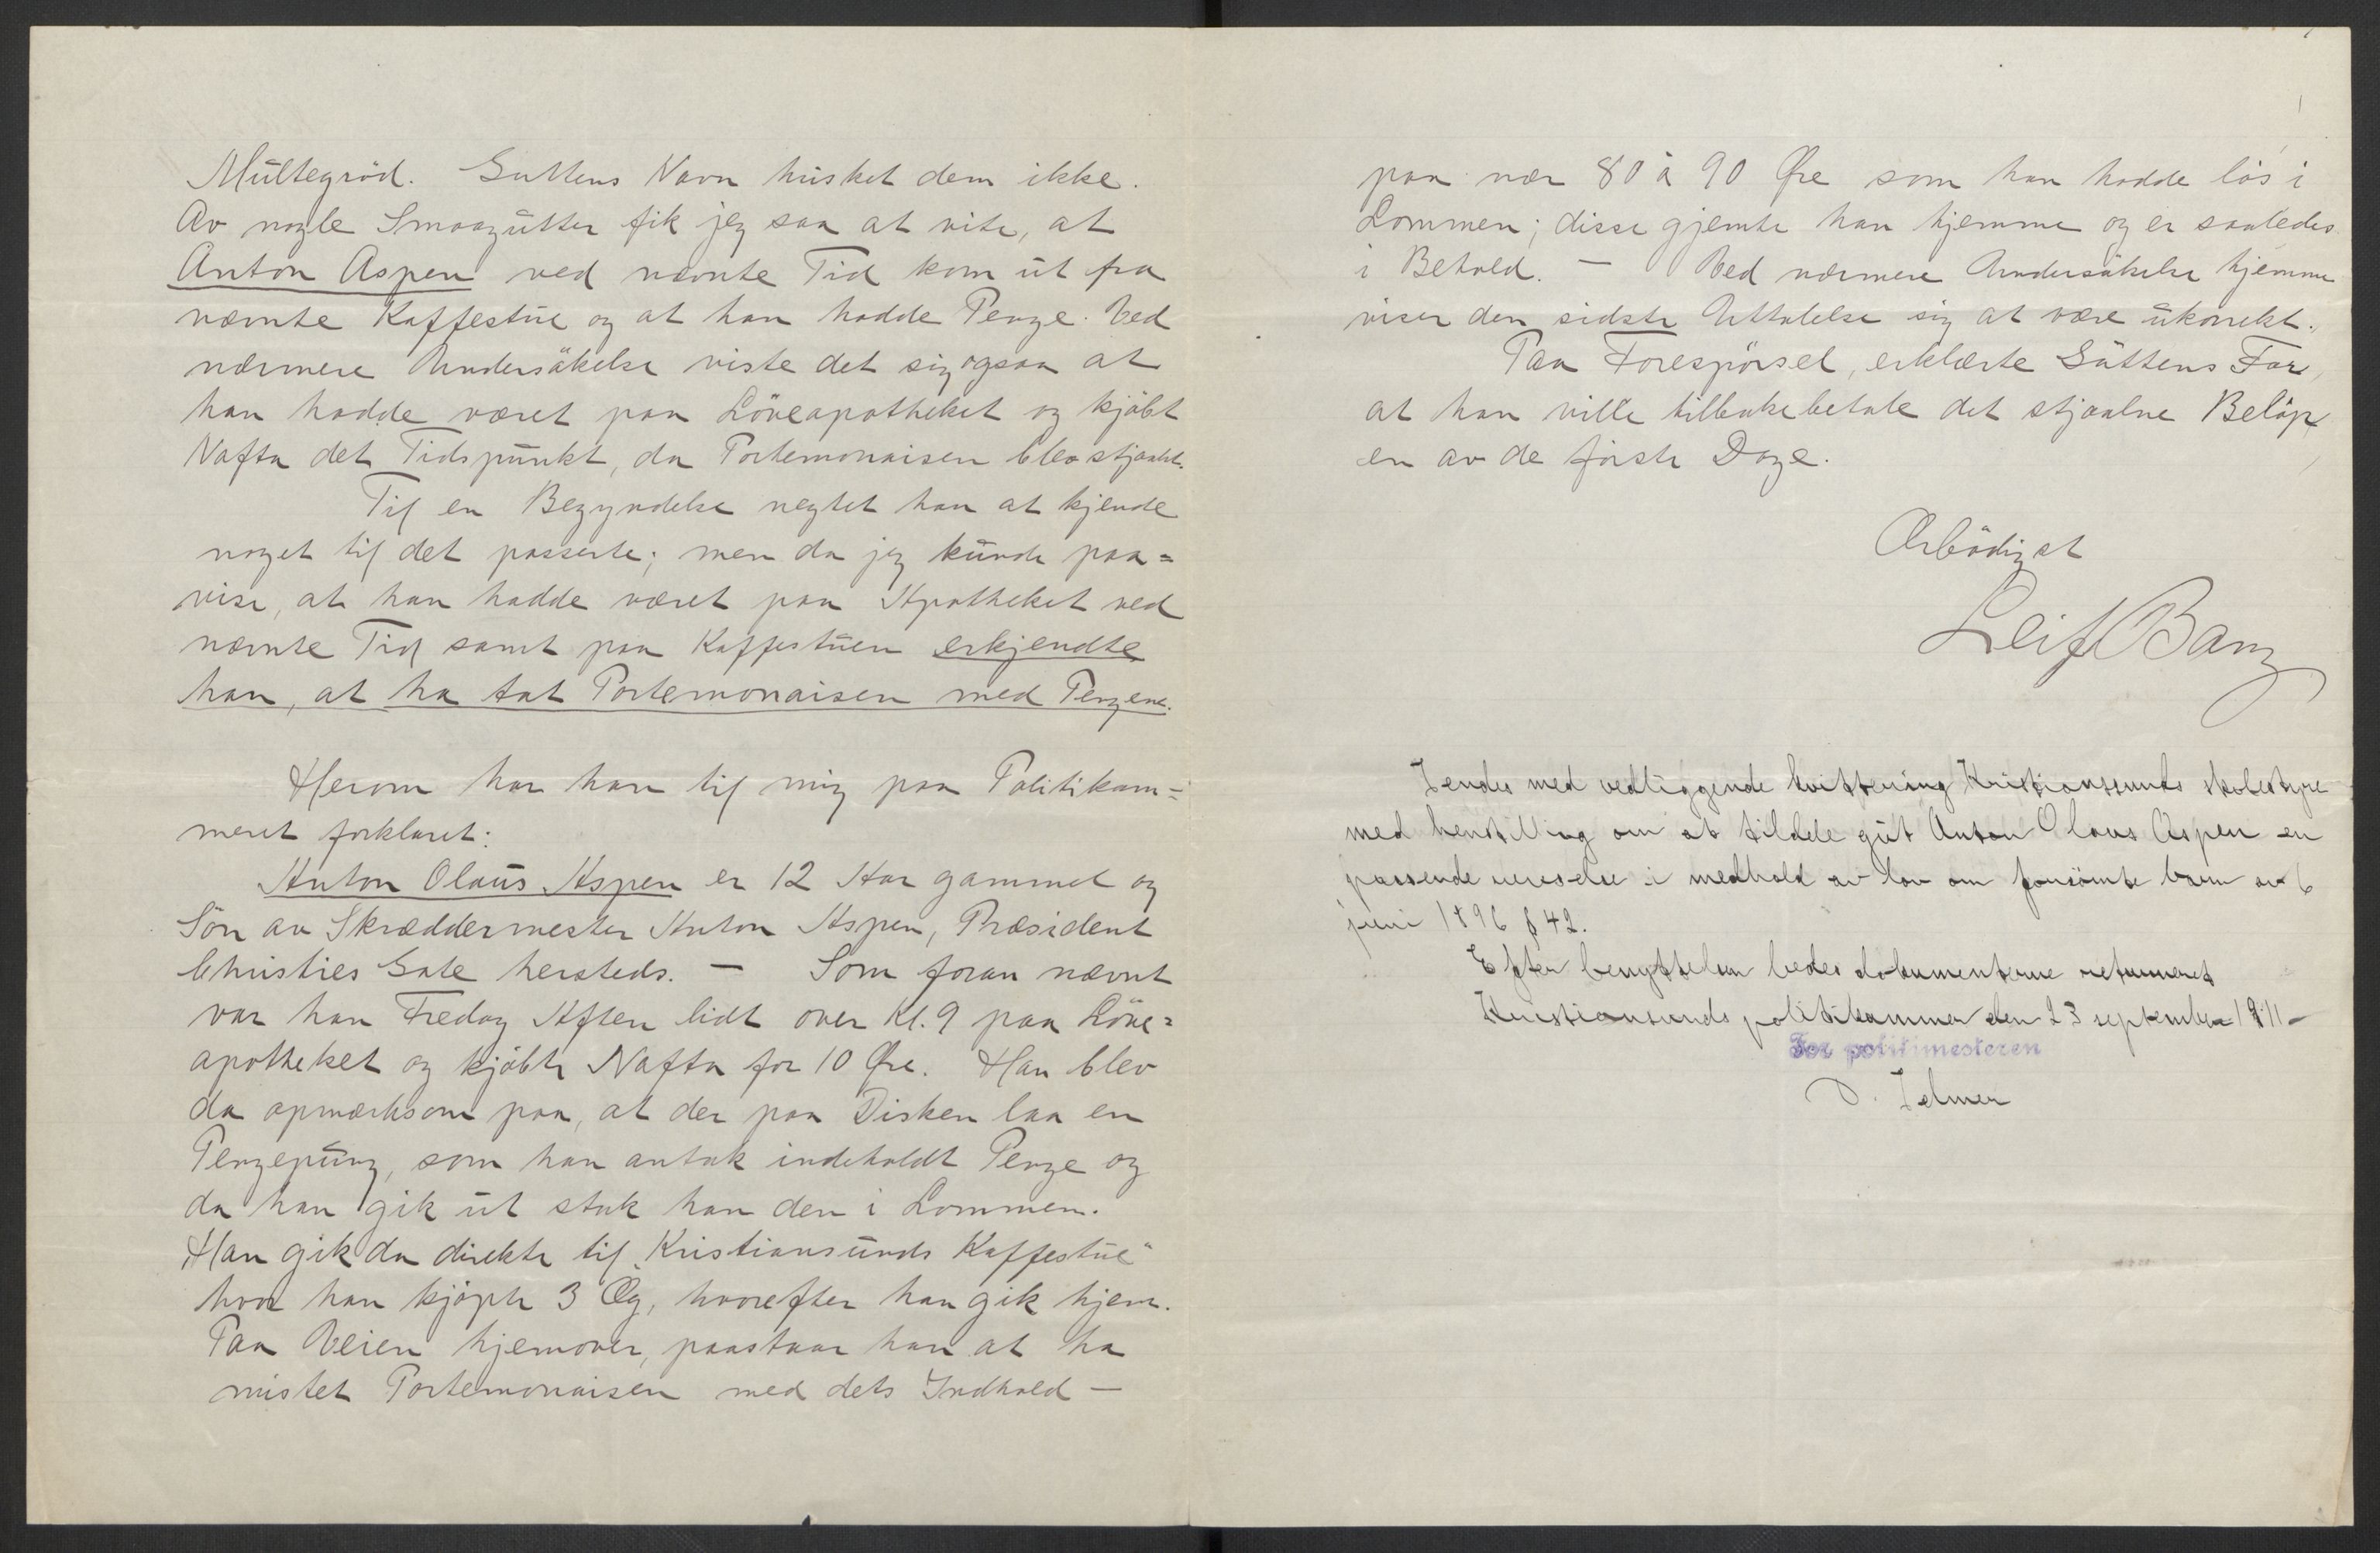 Multegröd. Guttens Navn husket dem ikke.
Av nogle Smaagutter fik jeg saa at vite, at
Anton Aspen ved nævnte Tid kom ut fra
nævnte Kaffestue og at han hadde Penge. Ved
nærmere Undersökelse viste det sig ogsaa at
han hadde været paa Löveapotheket og kjöbt
Nafta det Tidspunkt, da Portemonaisen blev stjaalet.
Til en Begyndelse negtet han at kjende
noget til det passerte; men da jeg kunde paa=
vise, at han hadde været paa Apotheket ved
nævnte Tid samt paa Kaffestuen erkjendte
han, at ha tat Portemonaisen med Pengene.
Herom har han til mig paa Politikam=
meret forklaret:
Anton Olaus Aspen er 12 Aar gammel og
Sön av Skræddermester Anton Aspen, Præsident
Christies Gate hersteds. — Som foran nævnt
var han Fredag Aften lidt over Kl. 9 paa Löve=
apotheket og kjöbte Nafta for 10 Øre. Han blev
da opmerksom paa, at der paa Disken laa en
Pengepung, som han antok indeholdt Penge og
da han gik ut stak han den i Lommen.
Han gik da direkte til „Kristiansunds Kaffestue"
hvor han kjöpte 3 Æg, hvorefter han gik hjem.
Paa Veien hjemover, paastaar han at ha
mistet Portemonaisen med dets Indhold —
paa nær 80 à 90 Øre som han hadde lös i
Lommen; disse gjemte han hjemme og er saaledes
i Behold. — Ved nærmere Undersökelse hjemme
viser den sidste Uttalelse sig at være ukorrekt.
Paa Forespörsel, erklærte Guttens Far,
at han ville tilbakebetale det stjaalne Belöp
en av de förste Dage.
Ærbödigst
Leif Bang
Sendes med vedliggende kvittering Kristianssunds skolestyre
med henstilling om at tildele gut Anton Olaus Aspen en
passende irettesettelse i medhold av lov om forsömte barn av 6
juni 1896 § 42.
Efter benyttelsen bedes dokumenterne returneret
Kristiansunds politikammer den 23 september 1911 -
For politimesteren